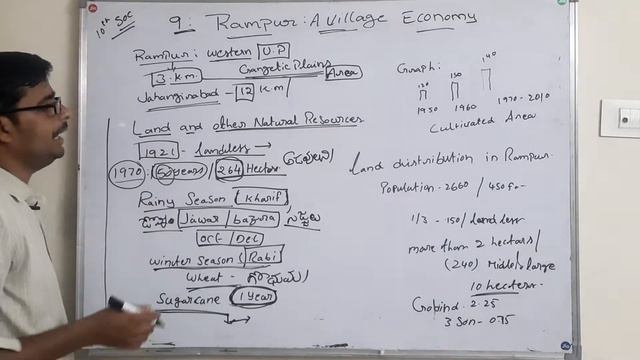 10th Soc
9: Rampur: A Village Economy
Rampur: Western U.P
3 K.m Gangetic Plains Area
Jahangirabad - 12 K.m
Land and other Natural Resources
1921 - landless →
1970: 50 years / 264 Hectars
Rainy Season (Kharif
Jawar / bazura
Oct - / Dec
Winter Season (Rabi
Wheat - గోధుమ
Sugarcane 1 year
Graph:
130 150 140
1950 1960 1970-2010
Cultivated Area
Land distribution in Rampur.
Population - 2660 / 450 fa-
1/3 - 150 / Landless
more than 2 hectars /
(240) Middle large
10 hecters.
Gobind 2.25
3 Son - 075